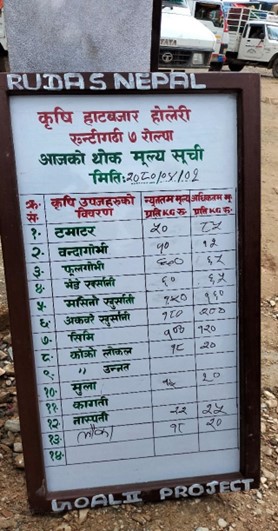 RUDAS NEPAL
कृषि हाटबजार होलेरी
रुन्टीगढी ७ रोल्पा
आजको थोक मूल्य सूची
मिति:२०८०/०४/०१
क्र. सं. कृषि उपजहरुको विवरण न्यूनतम मूल्य प्रति KG रु. अधिकतम मू. प्रति KG रु.
१. टमाटर ८०
२. वन्दागोभी १० १२
३. फूलगोभी ६५
४. भेडे खुर्सानी ६० ६५
५. मसिनो खुर्सानी १५० १६०
६. अकवरे खुर्सानी १८० २००
७. सिमि १०० १२०
८. काँक्रो लोकल १८ २०
९. ,, उन्नत
१०. मुला २०
११. कागती
१२. नास्पती २२ २५
१३. लौका १८ २०
१४.
GOAL II PROJECT